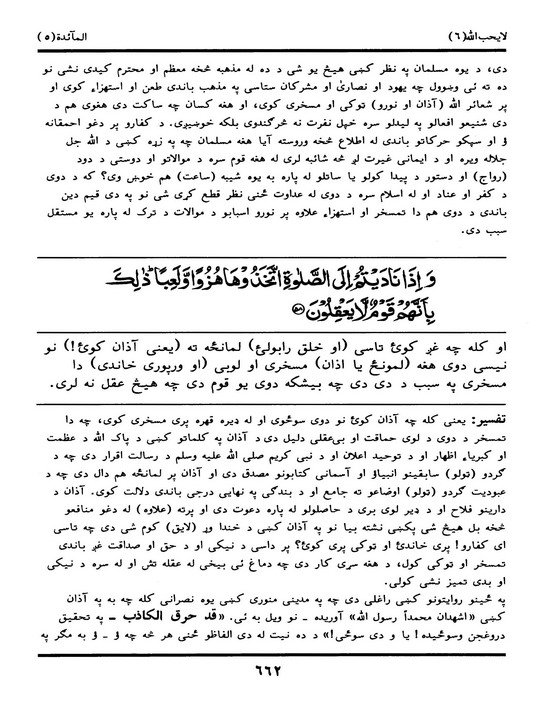 لايحب الله(٦)
المآئدة(٥)
دی، د يوه مسلمان په نظر كښی هيڅ يو شی د ده له مذهبه څخه معظم او محترم كيدی نشی نو
ده ته ئی وښوول چه يهود او نصاریٰ او مشركان ستاسی په مذهب باندی طعن او استهزاء كوی او
پر شعائر الله (آذان او نورو) توكی او مسخری كوی، او هغه كسان چه ساكت دی د هغوی هم د
دی شنيعو افعالو په ليدلو سره خپل نفرت نه څرگندوی بلكه خوښيږی. د كفارو پر دغو احمقانه
ؤ او سپكو حركاتو باندی له اطلاع څخه وروسته آيا هغه مسلمان چه په زړه كښی د الله جل
جلاله ويره او د ايمانی غيرت لږ څه شائبه لری له هغه قوم سره د موالاتو او دوستی د دود
(رواج) او دستور د پيدا كولو يا ساتلو له پاره به يوه شيبه (ساعت) هم خوښ وی؟ كه د دوی
د كفر او عناد او له اسلام سره د دوی له عداوت څنی نظر قطع كړی شی نو په دی قيم دين
باندی د دوی هم دا تمسخر او استهزاء علاوه پر نورو اسبابو د موالات د ترک له پاره يو مستقل
سبب دی.
وَاِذَا نَادَيْتُمْ اِلَى الصَّلٰوةِ اتَّخَذُوْهَا هُزُوًا وَّلَعِبًا ذٰلِكَ
بِاَنَّهُمْ قَوْمٌ لَّا يَعْقِلُوْنَ ۝٥٨
او كله چه غږ كوئ تاسی (او خلق رابولئ) لمانځه ته (يعنی آذان كوئ!) نو
نيسی دوی هغه (لمونځ يا اذان) مسخری او لوبی (او ورپوری خاندی) دا
مسخری په سبب د دی دی چه بيشكه دوی يو قوم دی چه هيڅ عقل نه لری.
تفسير: يعنی كله چه آذان كوئ نو دوی سوځوی او له ډيره قهره پری مسخری كوی، چه دا
تمسخر د دوی د لوی حماقت او بی‌عقلی دليل دی د آذان په كلماتو كښی د پاک الله د عظمت
او كبرياء اظهار او د توحيد اعلان او د نبی كريم صلی الله عليه وسلم د رسالت اقرار دی چه د
گردو (تولو) سابقينو انبياؤ او آسمانی كتابونو مصدق دی او آذان پر لمانځه هم دال دی چه د
عبوديت گردو (تولو) اوضاعو ته جامع او د بندگی په نهايی درجی باندی دلالت كوی. آذان د
دارينو فلاح او د ډير لوی بری د حاصلولو له پاره دعوت دی او پرته (علاوه) له دغو منافعو
څخه بل هيڅ شی پكښی نشته بيا نو په آذان كښی د خندا وړ (لايق) كوم شی دی چه تاسی
ای كفارو! پری خاندئ او توكی پری كوئ؟ پر داسی د نيكی او د حق او صداقت غږ باندی
تمسخر او توكی كول، د هغه سړی كار دی چه دماغ ئی بيخی له عقله تش او له سره د نيكی
او بدی تميز نشی كولی.
په ځينو روايتونو كښی راغلی دی چه په مدينی منوری كښی يوه نصرانی كله چه به په آذان
كښی «اشهدان محمداً رسول الله» آوريده ـ نو ويل به ئی. «قد حرق الكاذب ـ په تحقيق
دروغجن وسوځيده! يا و دی سوځی!» د ده نيت له دی الفاظو څنی هر څه چه ؤ ـ ؤ به مگر په
٦٦٢